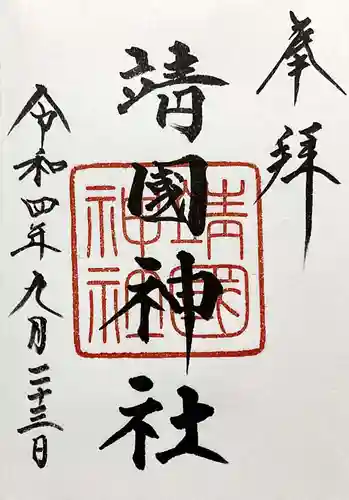 奉拝
靖國神社
靖國神社
令和四年九月二十三日